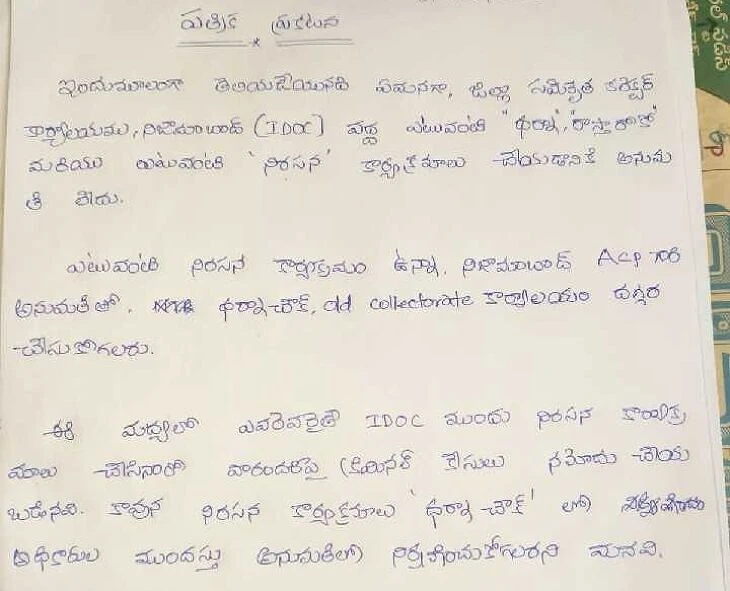 పత్రిక ప్రకటన
ఇందుమూలంగా తెలియజేయునది ఏమనగా, జిల్లా సమీకృత కలెక్టర్
కార్యాలయము, నిజామాబాద్ (IDOC) వద్ద ఎటువంటి "ధర్నా, రాస్తారోకో"
మరియు ఎటువంటి 'నిరసన' కార్యక్రమాలు చేయుడానికి అనుమ
తి లేదు.
ఎటువంటి నిరసన కార్యక్రమం ఉన్నా, నిజామాబాద్ ACP గారి
అనుమతితో, ధర్నాచౌక్, old collectorate కార్యాలయం దగ్గర
చేసుకోగలరు.
ఈ మధ్యలో ఎవరెవరైతే IDOC ముందు నిరసన కార్యక్ర
మాలు చేసినారో వారందరిపై క్రిమినల్ కేసులు నమోదు చేయ
బడినవి. కావున నిరసన కార్యక్రమాలు 'ధర్నా చౌక్' లో
అధికారుల ముందస్తు అనుమతితో నిర్వహించుకోగలరని మనవి.